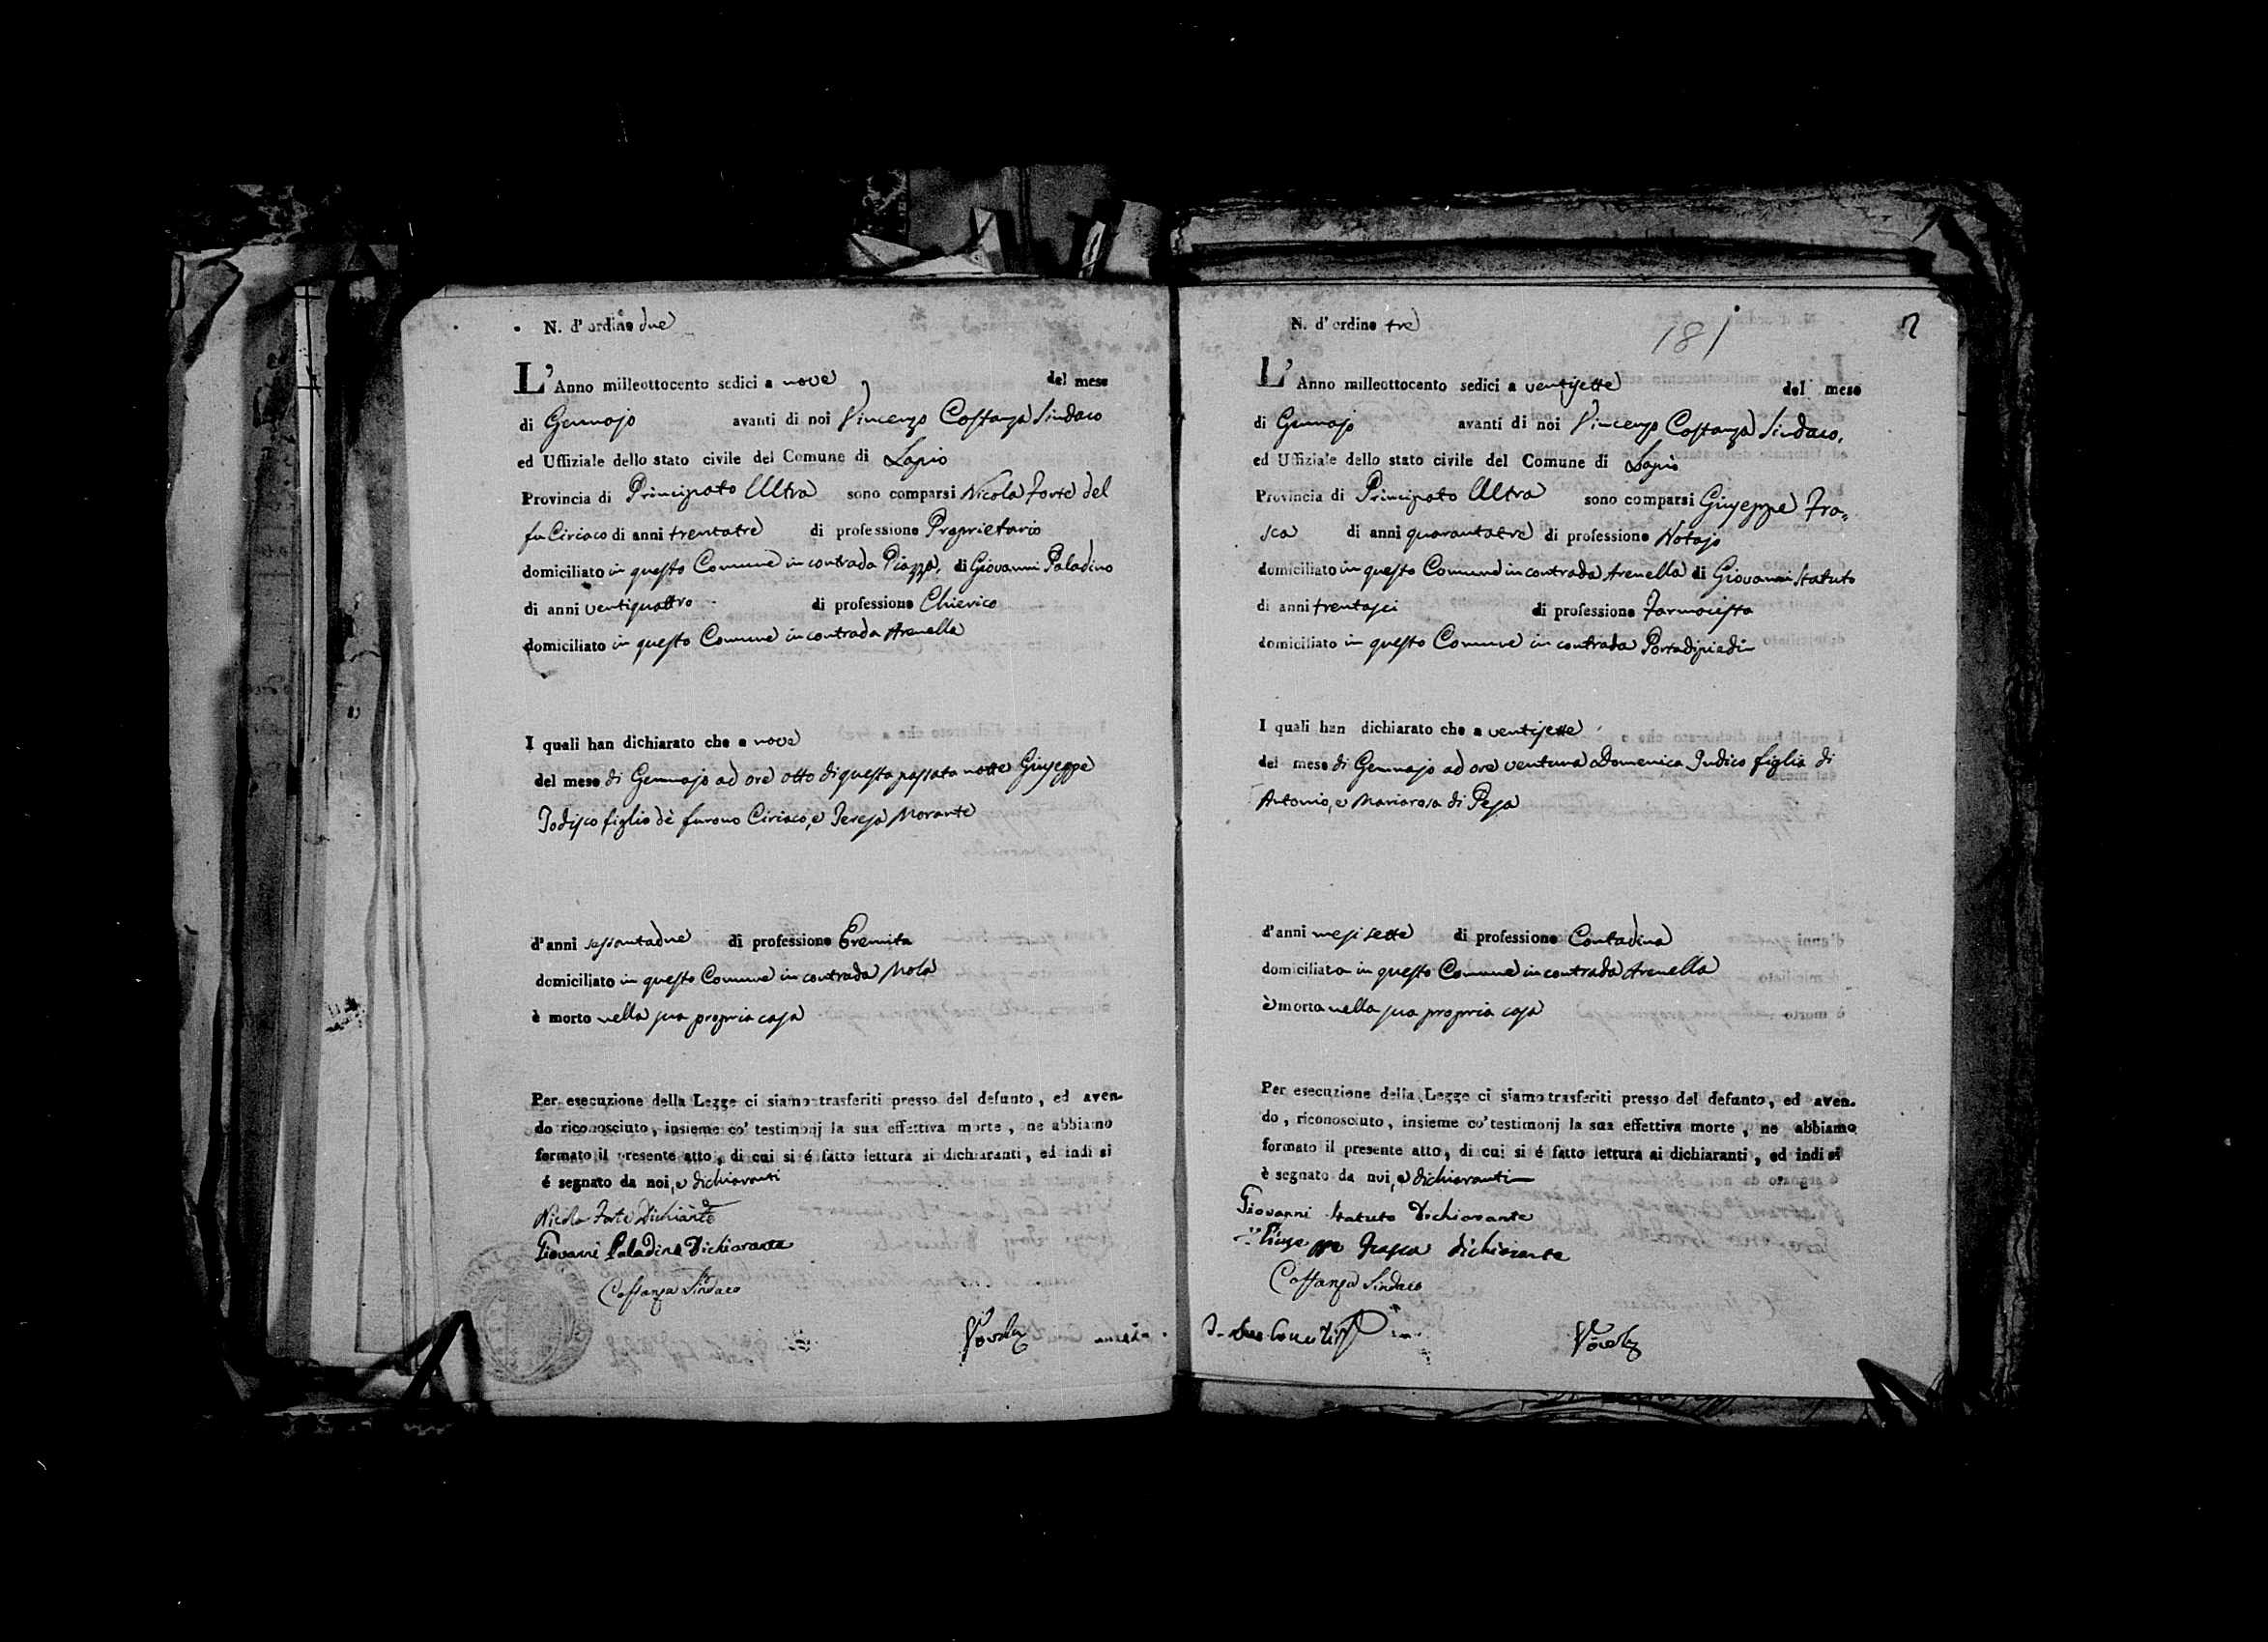 N. d' ordine due
L' Anno milleottocento sedici a nove del mese
di Gennajo avanti di noi Vincenzo Costanza Sindaco
ed Uffiziale dello stato civile del Comune di Lapio
Provincia di Principato Ultra sono comparsi Nicola Forte del
fu Ciriaco di anni trentatre di professione Proprietario
domiciliato in questo Comune in contrada Piazza, di Giovanni Paladino
di anni ventiquattro di professione Chierico
domiciliato in questo Comune in contrada Arenella
I quali han dichiarato che a nove
del mese di Gennajo ad ore otto di questa passata notte Giuseppe
Jodisco figlio dè furono Ciriaco, e Teresa Morante
d'anni sessantadue di professione Eremita
domiciliato in questo Comune in contrada Mola
è morto nella sua propria casa
Per esecuzione della Legge ci siamo trasferiti presso del defunto, ed aven-
do riconosciuto, insieme co' testimonj la sua effettiva morte, ne abbiamo
formato il presente atto, di cui si é fatto lettura ai dichiaranti, ed indi si
é segnato da noi, e dichiaranti
Nicola Forte Dichiante
Giovanni Paladino Dichiarante
Costanza Sindaco
N. d' ordine tre
181
2
L' Anno milleottocento sedici a ventisette del mese
di Gennajo avanti di noi Vincenzo Costanza Sindaco,
ed Uffiziale dello stato civile del Comune di Lapio
Provincia di Principato Ultra sono comparsi Giuseppe Fra-
sca di anni quarantatre di professione Notajo
domiciliato in questo Comune in contrada Arenella di Giovanni Statuto
di anni trentasei di professione Farmacista
domiciliato in questo Comune in contrada Portadipiedi
I quali han dichiarato che a ventisette
del mese di Gennajo ad ore ventuna Domenica Judico figlia di
Antonio, e Mariarosa di Pesa
d'anni mesi sette di professione Contadina
domiciliata in questo Comune in contrada Arenella
è morta nella sua propria casa
Per esecuzione della Legge ci siamo trasferiti presso del defunto, ed aven-
do, riconosciuto, insieme co' testimonj la sua effettiva morte, ne abbiamo
formato il presente atto, di cui si é fatto lettura ai dichiaranti, ed indi si
è segnato da noi, e dichiaranti
Giovanni Statuto Dichiarante
Giuseppe Frasca dichiarante
Costanza Sindaco